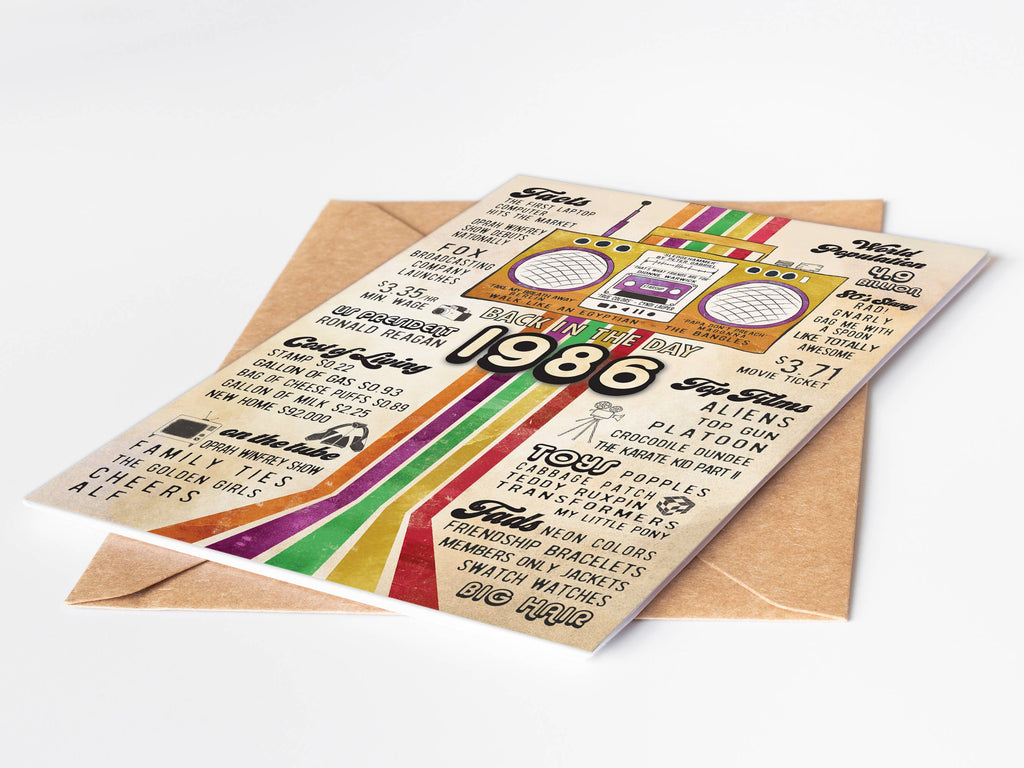 Facts
THE FIRST LAPTOP
COMPUTER
HITS THE MARKET
OPRAH WINFREY
SHOW DEBUTS
NATIONALLY
FOX
BROADCASTING
COMPANY
LAUNCHES
$3.35/HR
MIN. WAGE
US PRESIDENT
RONALD REAGAN
Cost of Living
STAMP $0.22
GALLON OF GAS $0.93
BAG OF CHEESE PUFFS $0.89
GALLON OF MILK $2.25
NEW HOME $92,000
on the tube
OPRAH WINFREY SHOW
FAMILY TIES
THE GOLDEN GIRLS
CHEERS
ALF
SLEDGEHAMMER
BY PETER GABRIEL
THAT'S WHAT FRIENDS ARE FOR
DIONNE WARWICK
TRUE COLORS - CYNDI LAUPER
TAKE MY BREATH AWAY
BERLIN
WALK LIKE AN EGYPTIAN - THE BANGLES
PAPA DON'T PREACH
MADONNA
BACK IN THE DAY
1986
World
Population
4.9
BILLION
80's Slang
RAD!
GNARLY
GAG ME WITH
A SPOON
LIKE TOTALLY
AWESOME
$3.71
MOVIE TICKET
Top Films
ALIENS
TOP GUN
PLATOON
CROCODILE DUNDEE
THE KARATE KID PART II
TOYS POPPLES
CABBAGE PATCH
TEDDY RUXPIN
TRANSFORMERS
MY LITTLE PONY
Fads NEON COLORS
FRIENDSHIP BRACELETS
MEMBERS ONLY JACKETS
SWATCH WATCHES
BIG HAIR